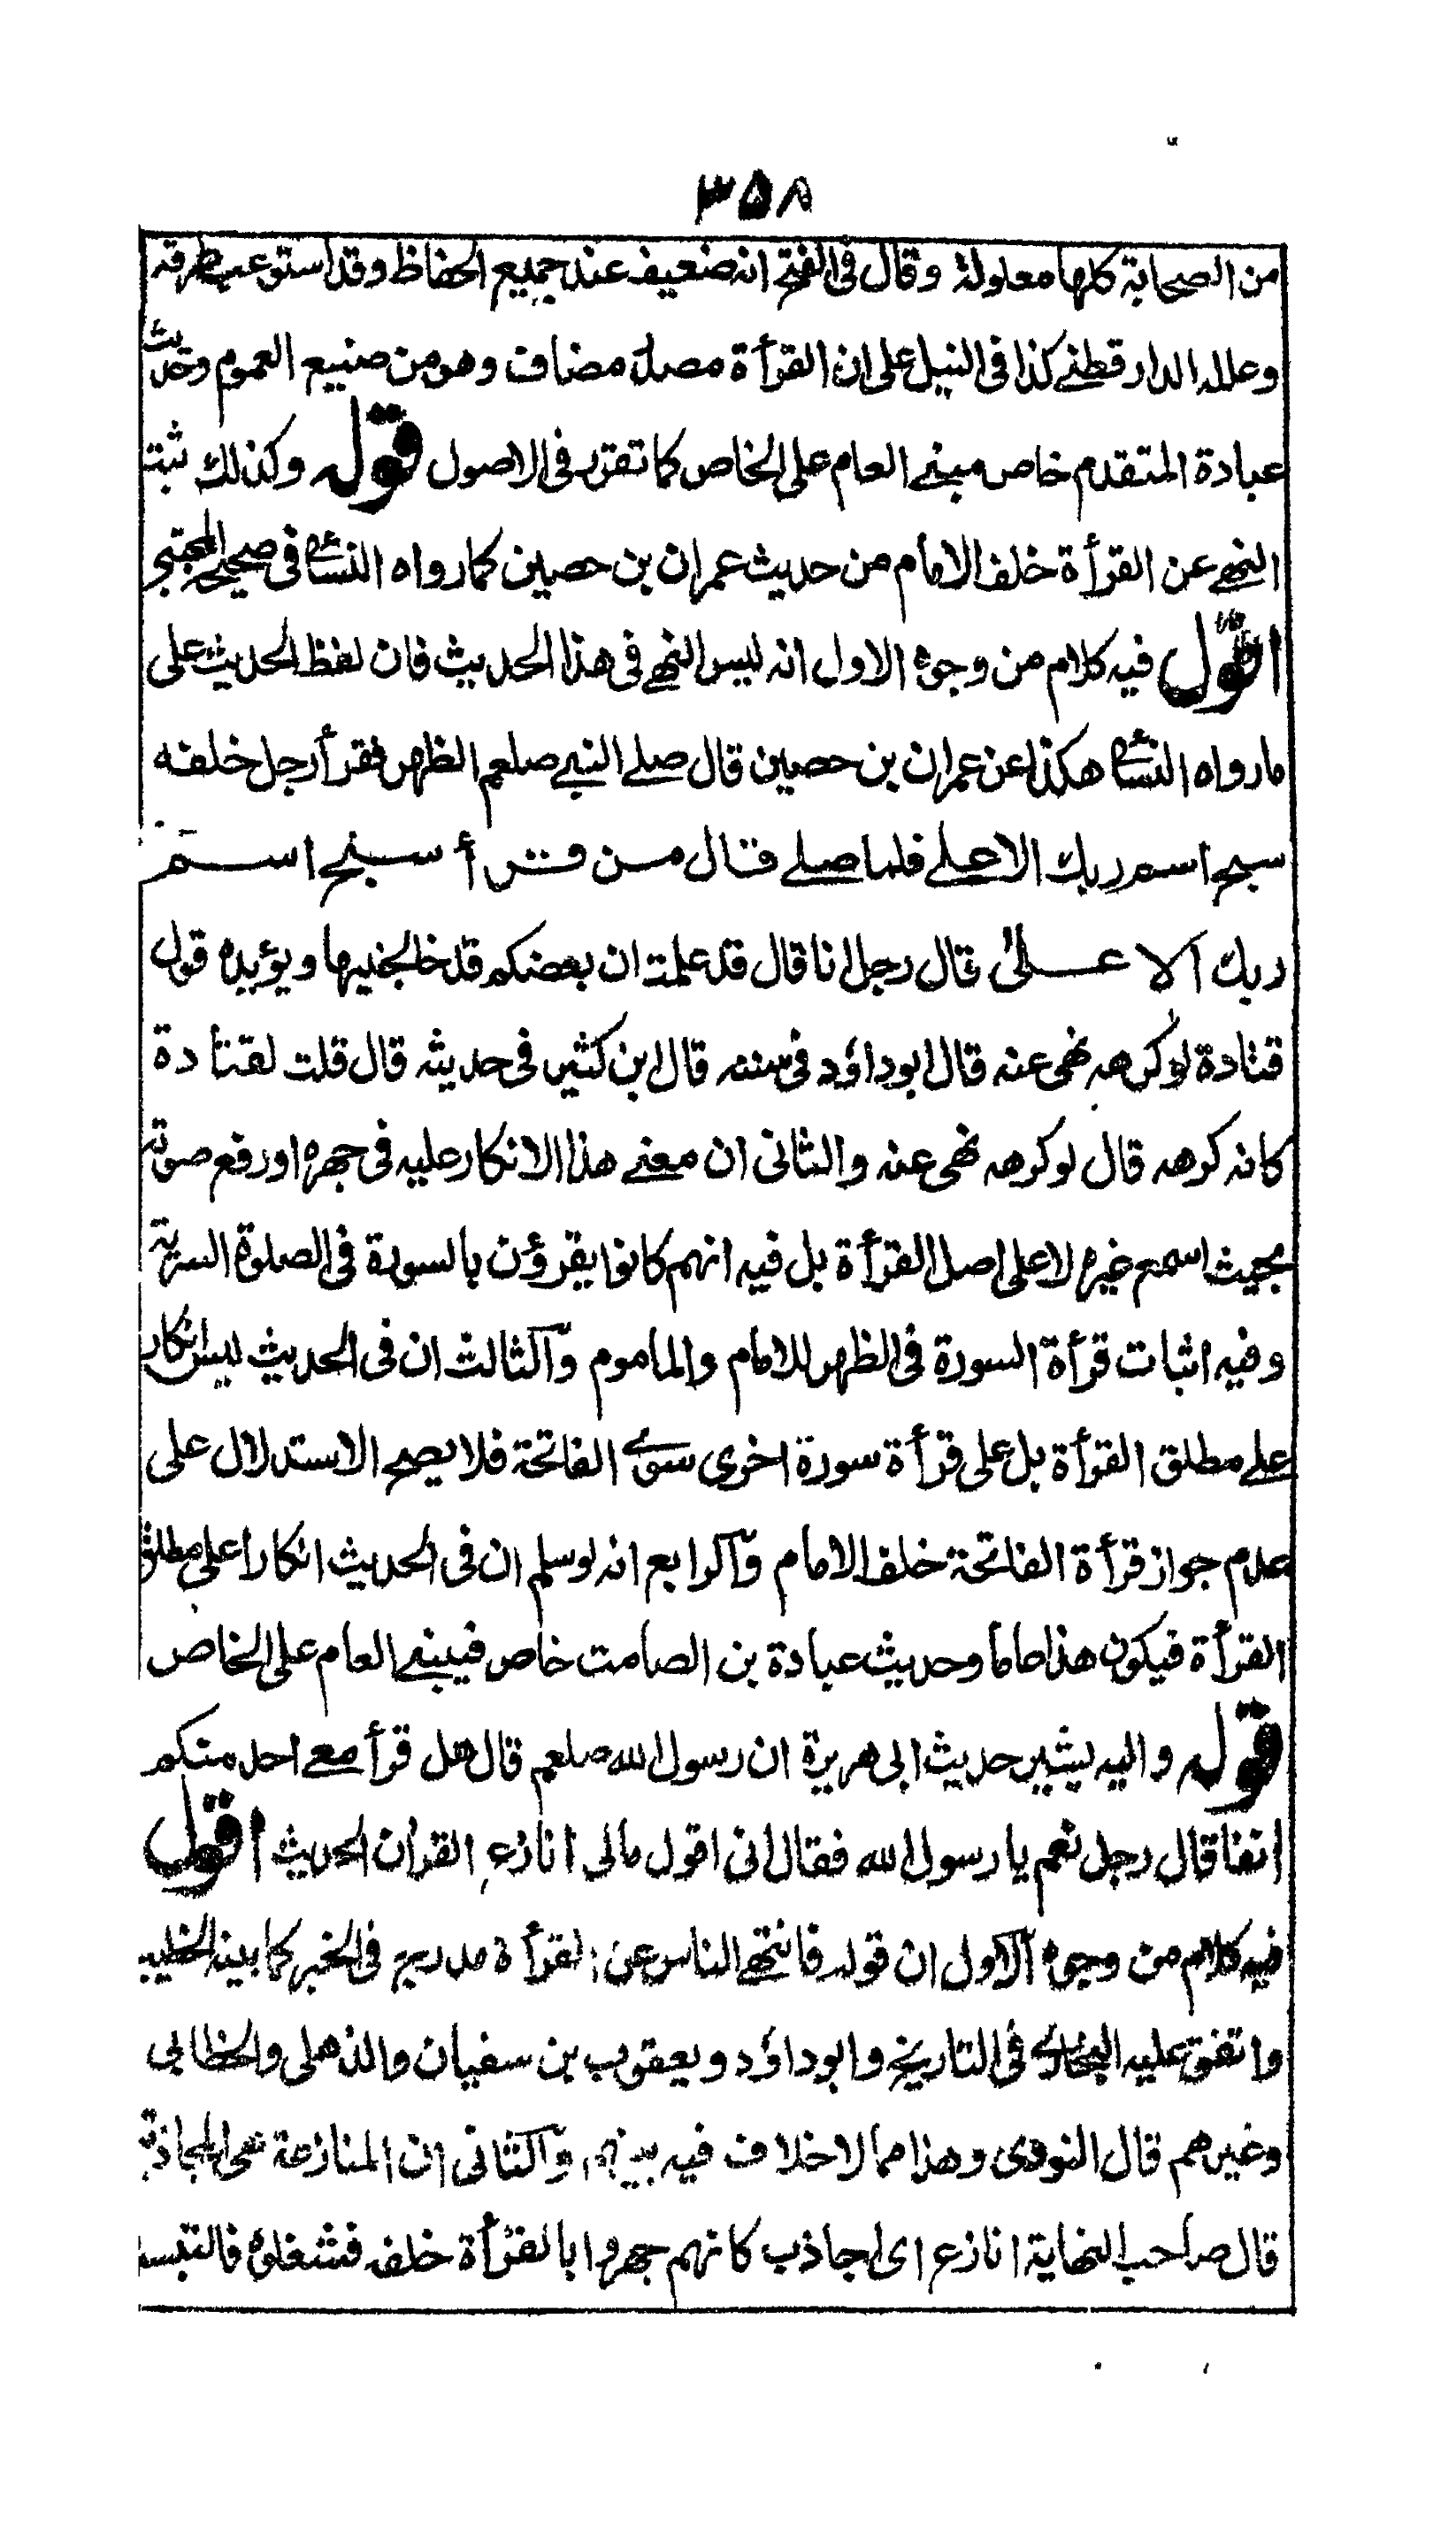 ۳۵۸
من الصحابة كلها معلولة وقال فى الفتح انه ضعيف عند جميع الحفاظ وقد استوعب طرقه
وعلله الدارقطنے كذا فى النيل على ان القرأة مصدر مضاف وهو من صنيع العموم وحديث
عبادة المتقدم خاص مبنے العام على الخاص كما تقرر فى الاصول قوله وكذلك ثبت
النهے عن القرأة خلف الامام من حديث عمران بن حصين كما رواه النسائے فى صحيحه المجتبى
اقول فيه كلام من وجوه الاول انه ليس النهے فى هذا الحديث فان لفظ الحديث على
ما رواه النسائے هكذا عن عمران بن حصين قال صلے النبے صلعم الظهر فقرأ رجل خلفه
سبح اسم ربك الاعلے فلما صلے قال من قرأ سبح اسم
ربك الاعلىٰ قال رجل انا قال قد علمت ان بعضكم قد خالجنيها ويؤيده قول
قتادة لو كرهه نهى عنه قال ابوداؤد فى سننه قال ابن كثير فى حديثه قال قلت لقتادة
كانه كرهه قال لو كرهه نهى عنه والثانى ان معنے هذا الانكار عليه فى جهره او رفع صوته
بحيث اسمع غيره لا على اصل القرأة بل فيه انهم كانوا يقرؤن بالسورة فى الصلوة السرية
وفيه اثبات قرأة السورة فى الظهر للامام والماموم وآلثالث ان فى الحديث ليس انكار
علے مطلق القرأة بل على قرأة سورة اخرى سوے الفاتحة فلا يصح الاستدلال على
عدم جواز قرأة الفاتحة خلف الامام وآلرابع انه لو سلم ان فى الحديث انكارا على مطلق
القرأة فيكون هذا عاما وحديث عبادة بن الصامت خاص فيبنے العام على الخاص
قوله واليه يشير حديث ابى هريرة ان رسول الله صلعم قال هل قرأ معے احد منكم
انفا قال رجل نعم يا رسول الله فقال انى اقول مالى انازع القرآن الحديث اقول
فيه كلام من وجوه آلاول ان قوله فانتهے الناس عن القرأة مدرج فى الخبر كما بينه الخطيب
واتفق عليه البخارے فى التاريخ وابوداؤد ويعقوب بن سفيان والذهلى والخطابى
وغيرهم قال النووى وهذا مما لا خلاف فيه بينهم وآلثانى ان المنازعة هى المجاذبة
قال صاحب النهاية انازع اى اجاذب كانهم جهروا بالقرأة خلفه فشغلوه فالتبست